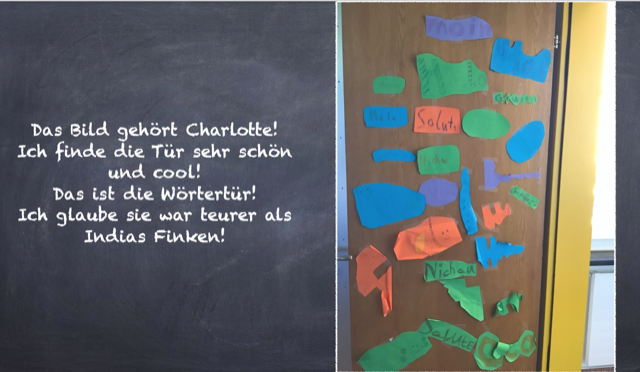 Das Bild gehört Charlotte!
Ich finde die Tür sehr schön
und cool!
Das ist die Wörtertür!
Ich glaube sie war teurer als
Indias Finken!
moin
Salut
Nichau
SALUTE